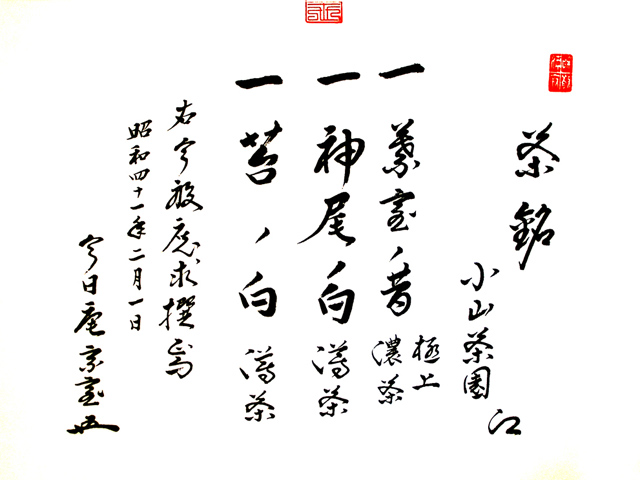 茶銘
小山茶園
江
一 葉室ノ昔 極上
濃茶
一 神尾ノ白 薄茶
一 苔ノ白 薄茶
右今般應求撰焉
昭和四十一年二月一日
今日庵宗室